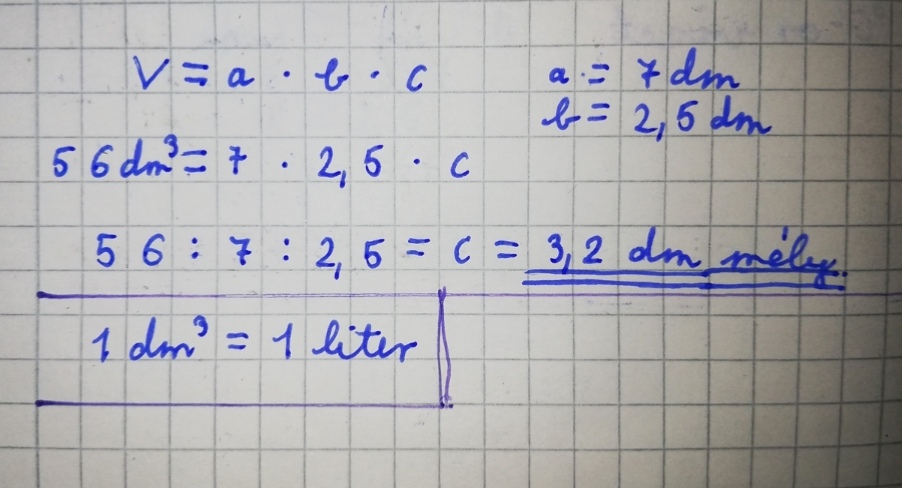 V = a · b · c
a = 7 dm
b = 2,5 dm
56 dm³ = 7 · 2,5 · c
56 : 7 : 2,5 = c = 3,2 dm mély.
1 dm³ = 1 liter